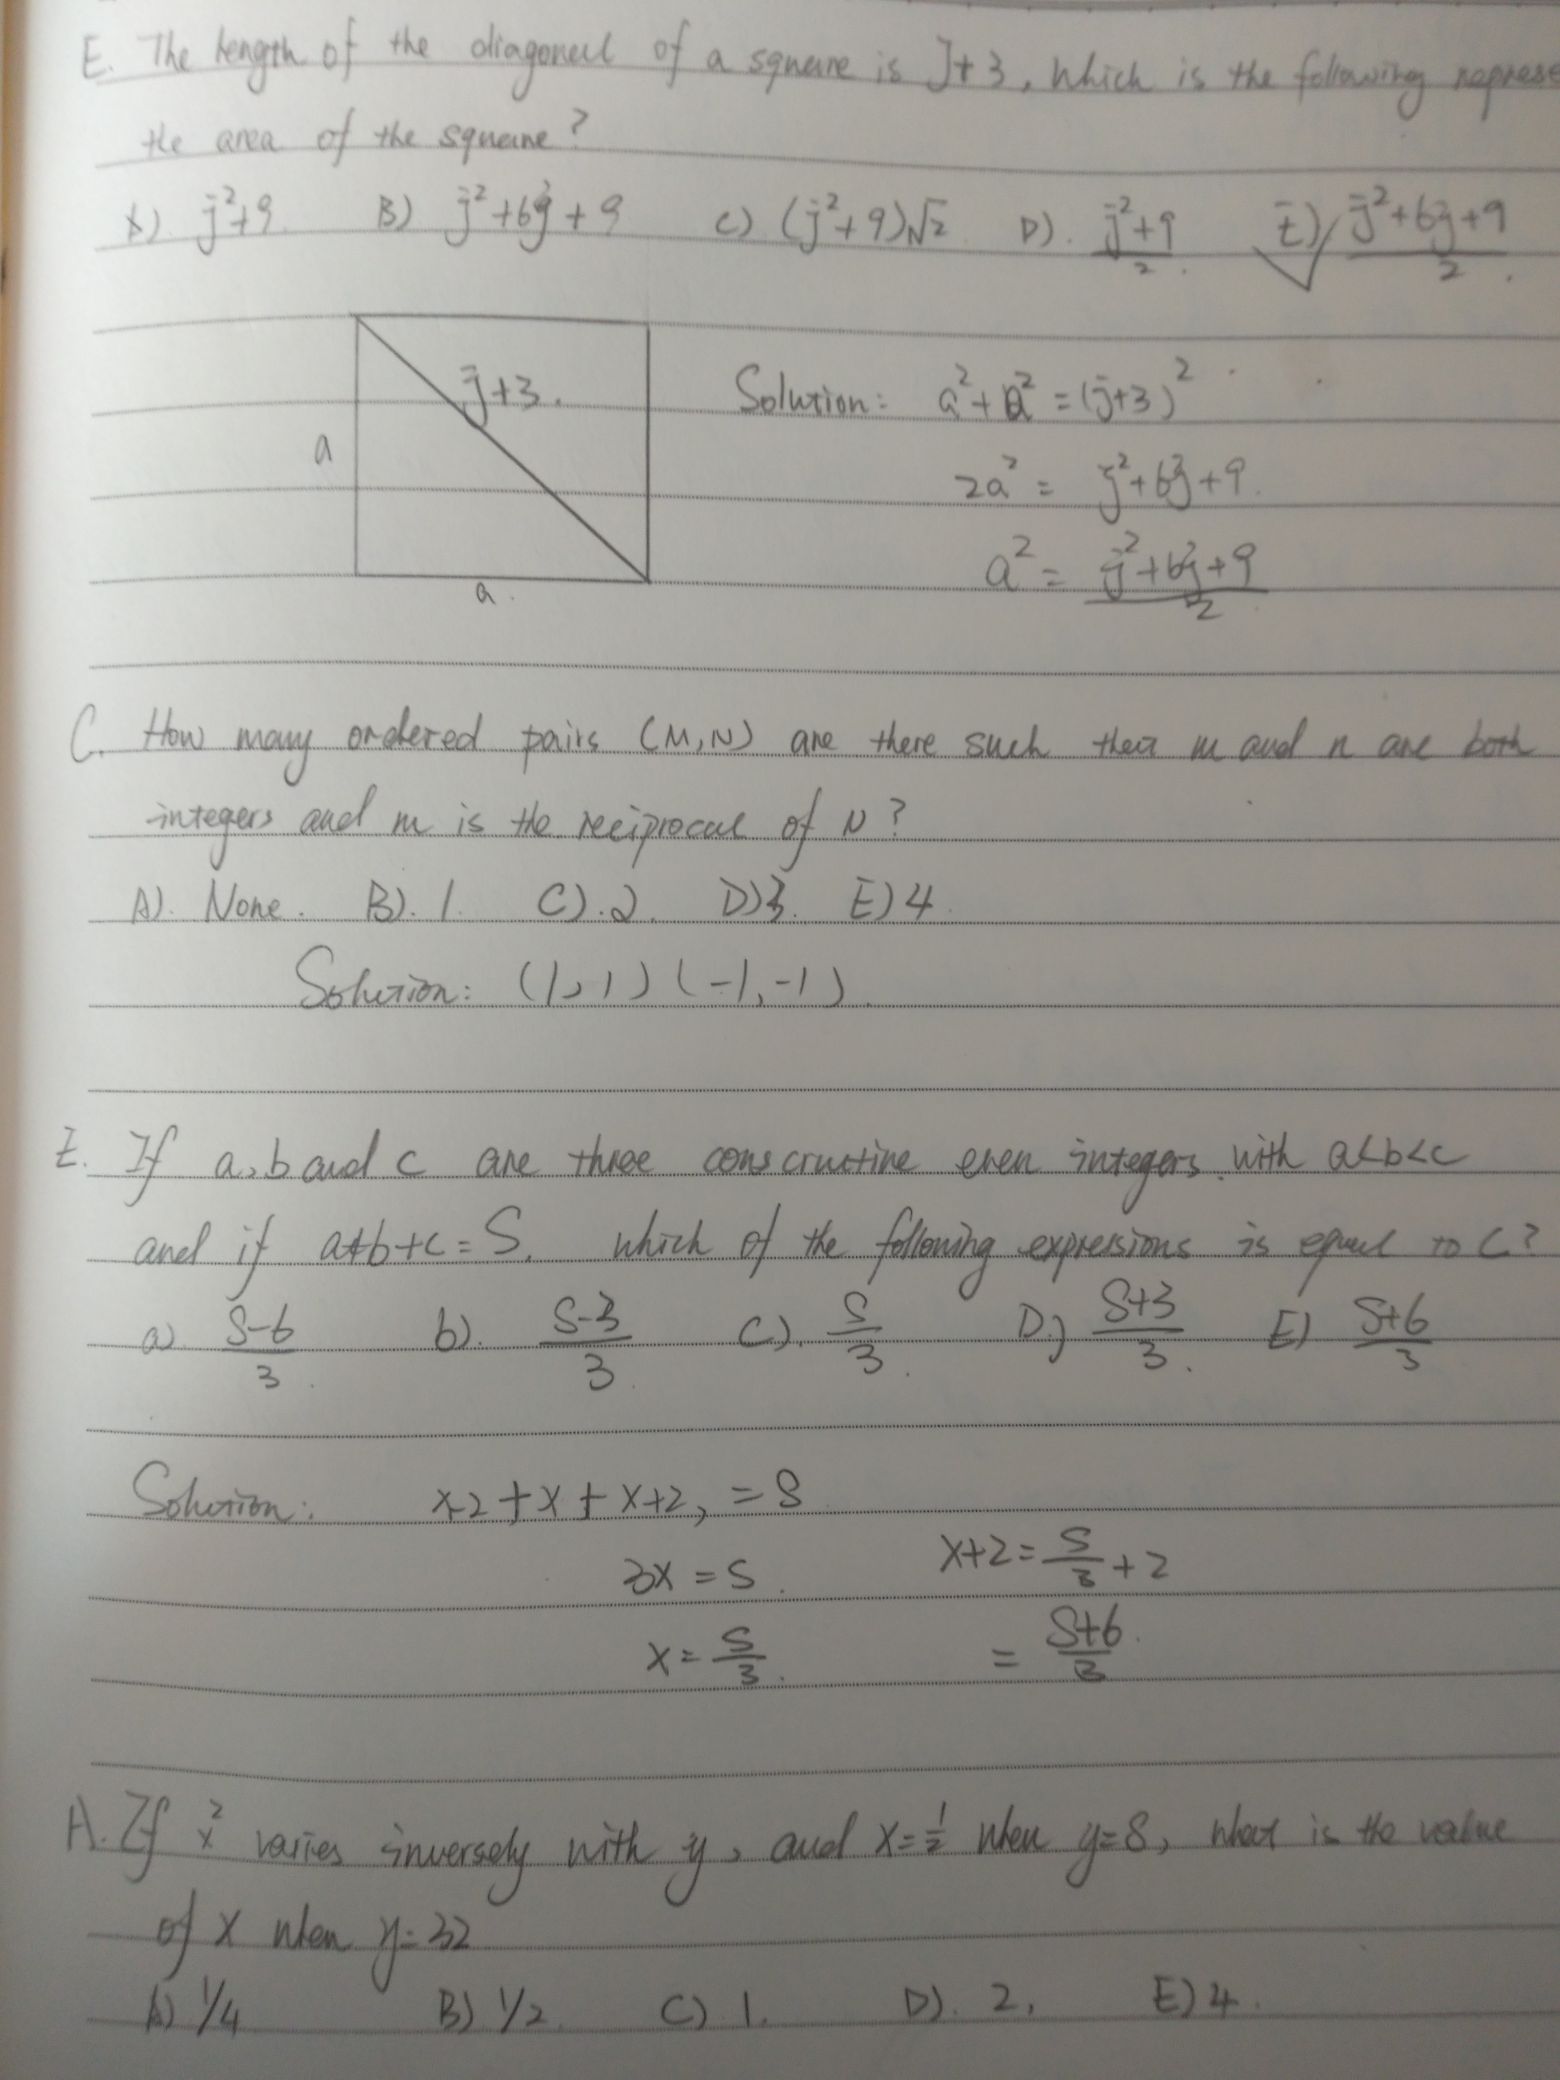 E. The length of the diagonal of a square is J+3, which is the following represe
the area of the square?
A) j²+9 B) j²+6j+9 C) (j²+9)√2 D). (j²+9)/2. E) (j²+6j+9)/2.
j+3.
a
a.
Solution: a²+a²=(j+3)²
2a² = j²+6j+9.
a² = (j²+6j+9)/2
C. How many ordered pairs (M,N) are there such that m and n are both
integers and m is the reciprocal of N?
A). None. B). 1. C). 2. D) 3. E) 4.
Solution: (1,1) (-1,-1).
E. If a, b and c are three even integers with a<b<c
and if a+b+c=S. which of the following expressions is equal to C?
a). (S-6)/3. b). (S-3)/3. C). S/3. D.) (S+3)/3. E) (S+6)/3
Solution: x-2+x+x+2, = S
3x = S.
x = S/3.
x+2 = S/3 + 2
= (S+6)/3
A. If x² varies inversely with y, and x=1/2 when y=8, what is the value
of x when y=32
A) 1/4 B) 1/2. C) 1. D). 2. E) 4.